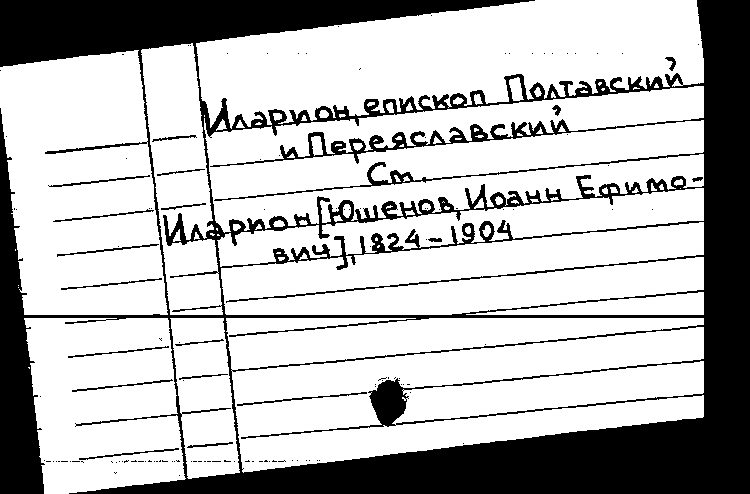 Иларион, епископ Полтавский
и Переяславский
См.
Иларион [Юшенов, Иоанн Ефимо-
вич], 1824-1904